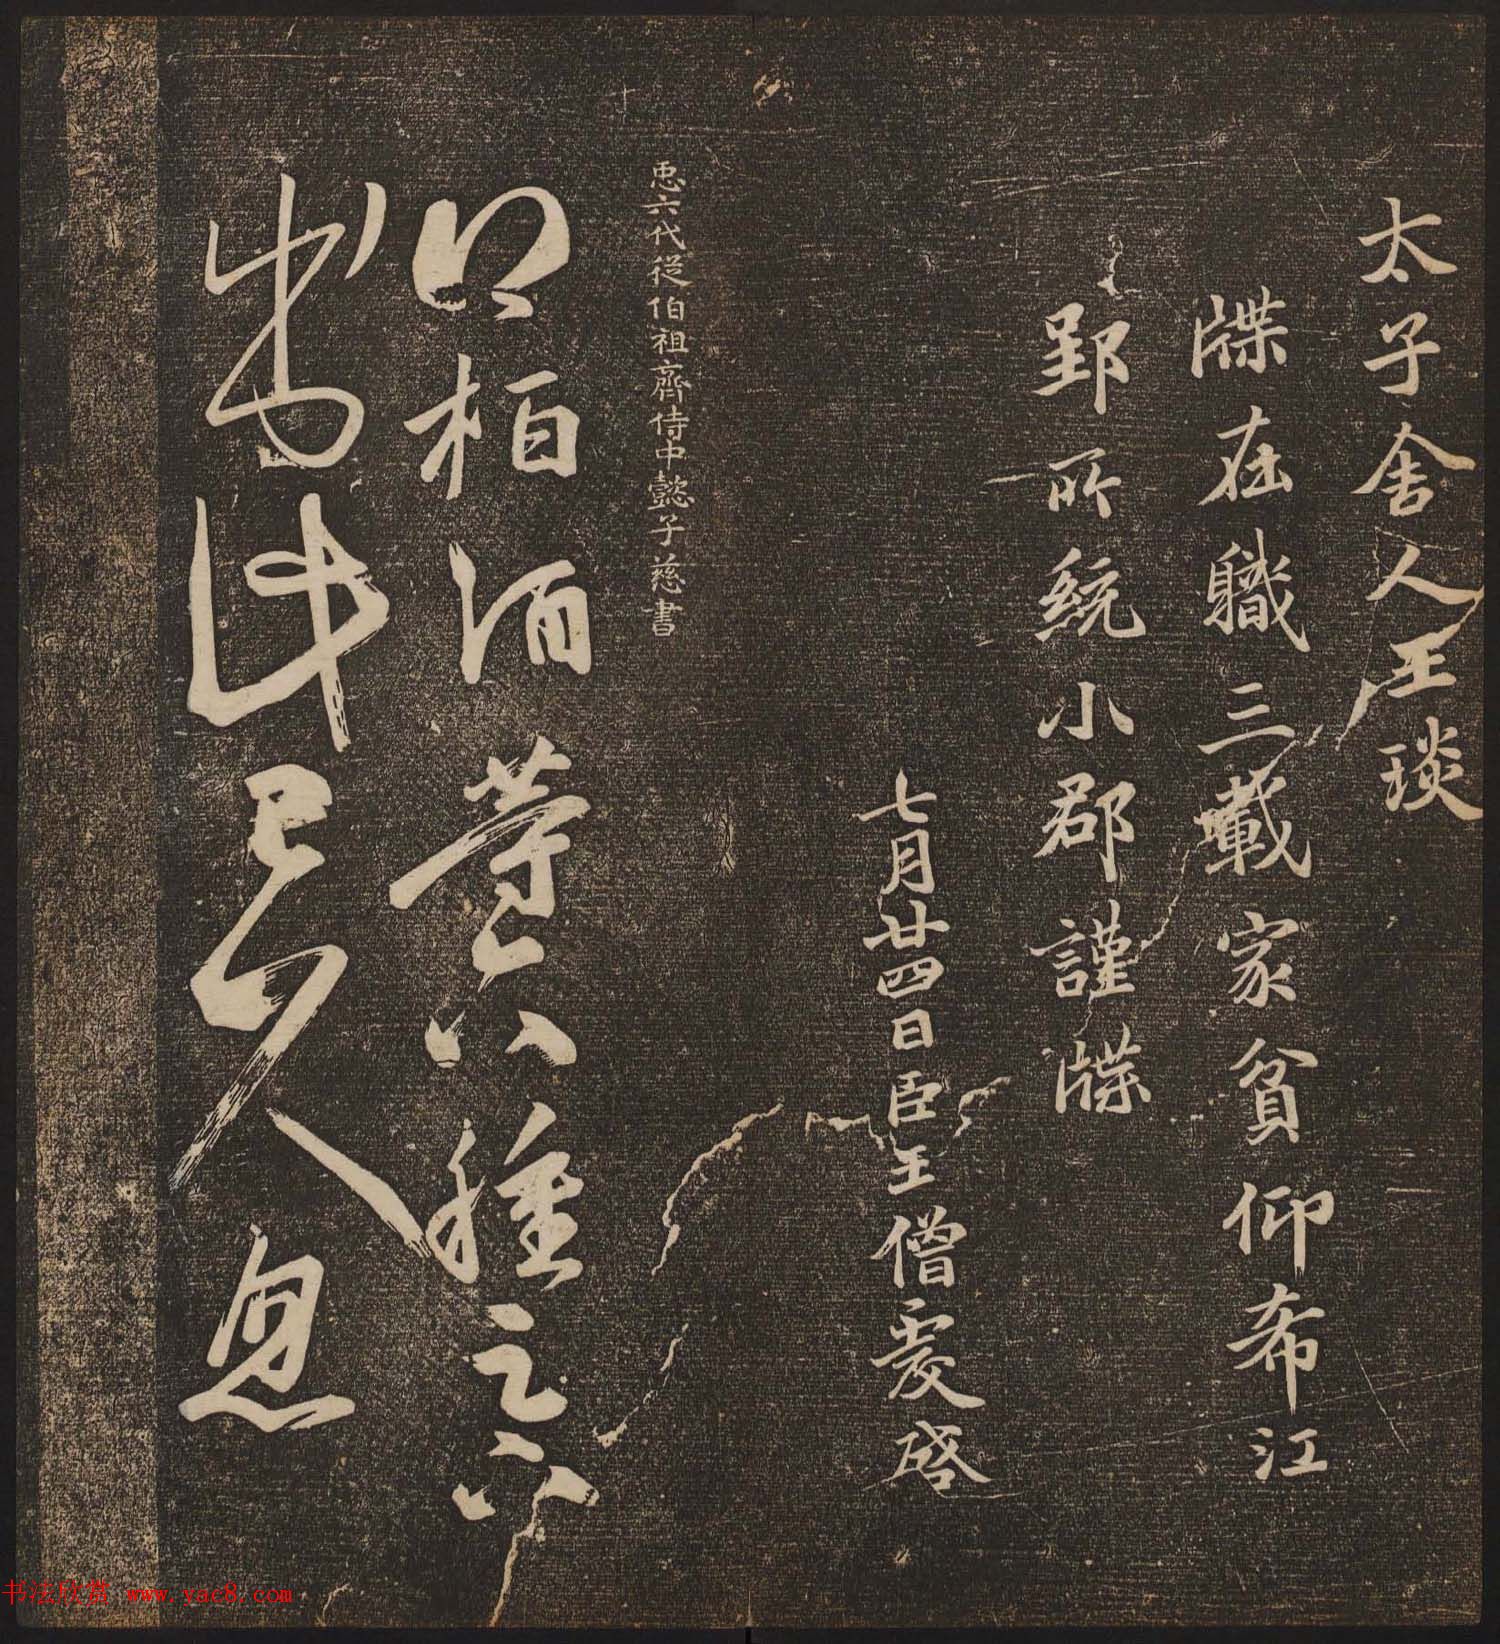 太子舍人王琰
牒在職三載家貧仰希江
郢所統小郡謹牒
七月廿四日臣王僧虔啓
𢘑六代從伯祖齊侍中懿子慈書
柏酒等六種足下
此人息
书法欣赏 www.yac8.com